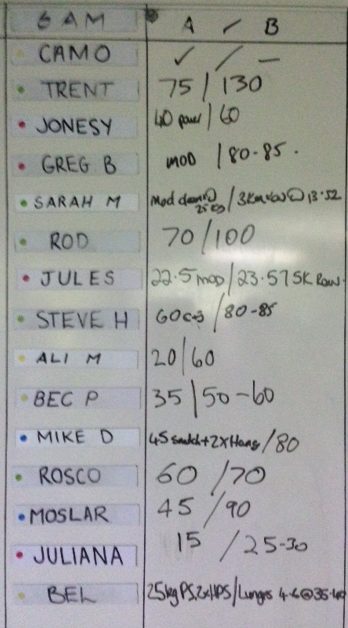 6 AM A / B
CAMO ✓ / —
TRENT 75 / 130
JONESY 40 power / 60
GREG B MOD / 80-85.
SARAH M Mod @ 25kg / 3km row @ 13.52
ROD 70 / 100
JULES 22.5 mod / 23.57 5K Row.
STEVE H 60 / 80-85
ALI M 20 / 60
BEC P 35 / 50-60
MIKE D 45 snatch + 2x Hang / 80
ROSCO 60 / 70
MOSLAR 45 / 90
JULIANA 15 / 25-30
BEL 25kg PS, 2xHPS / Lunges 4-6 @ 35-40